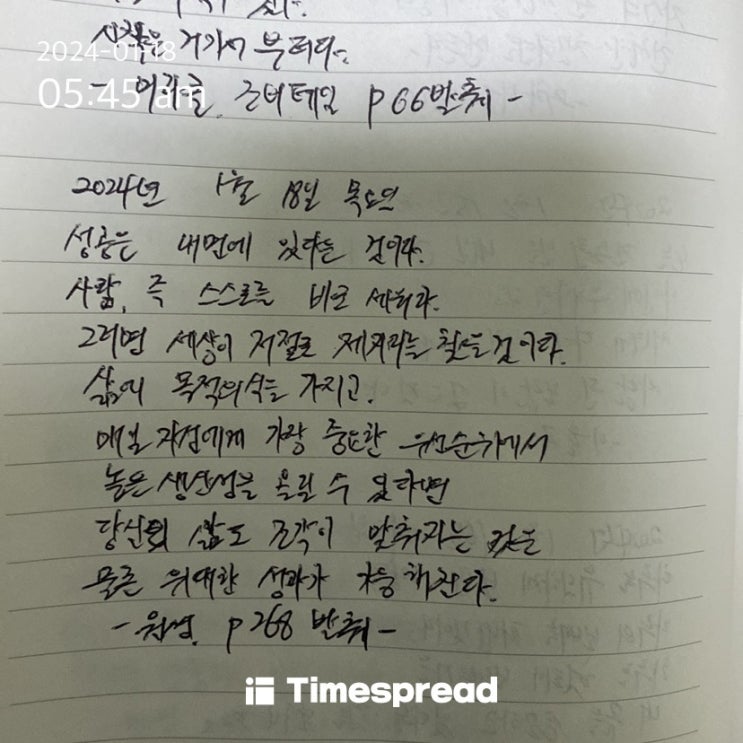 시작은 거기서 부터다.
2024-01-18
05:45 am
- 미라클 모닝 p 66 발췌 -
2024년 1월 18일 목요일
성공은 내면에 있다는 것이다.
사람, 즉 스스로를 바로 세워라.
그러면 세상이 저절로 제자리를 찾을 것이다.
삶에 목적의식을 가지고,
매일 자신에게 가장 중요한 우선순위에서
높은 생산성을 올릴 수 있다면
당신의 삶도 조각이 맞춰지는 것은
물론 위대한 성과가 가능해진다.
- 원씽, p 268 발췌 -
Timespread